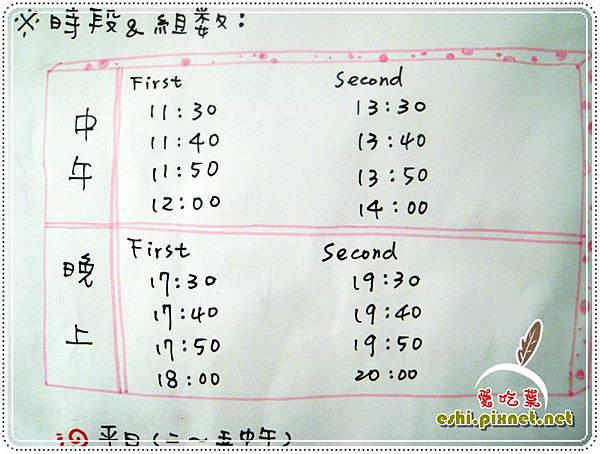 ※時段&組数:
First Second
中午
11:30 13:30
11:40 13:40
11:50 13:50
12:00 14:00
First Second
晚上
17:30 19:30
17:40 19:40
17:50 19:50
18:00 20:00
愛吃葉
eshi.pixnet.net
平日(二～五中午)